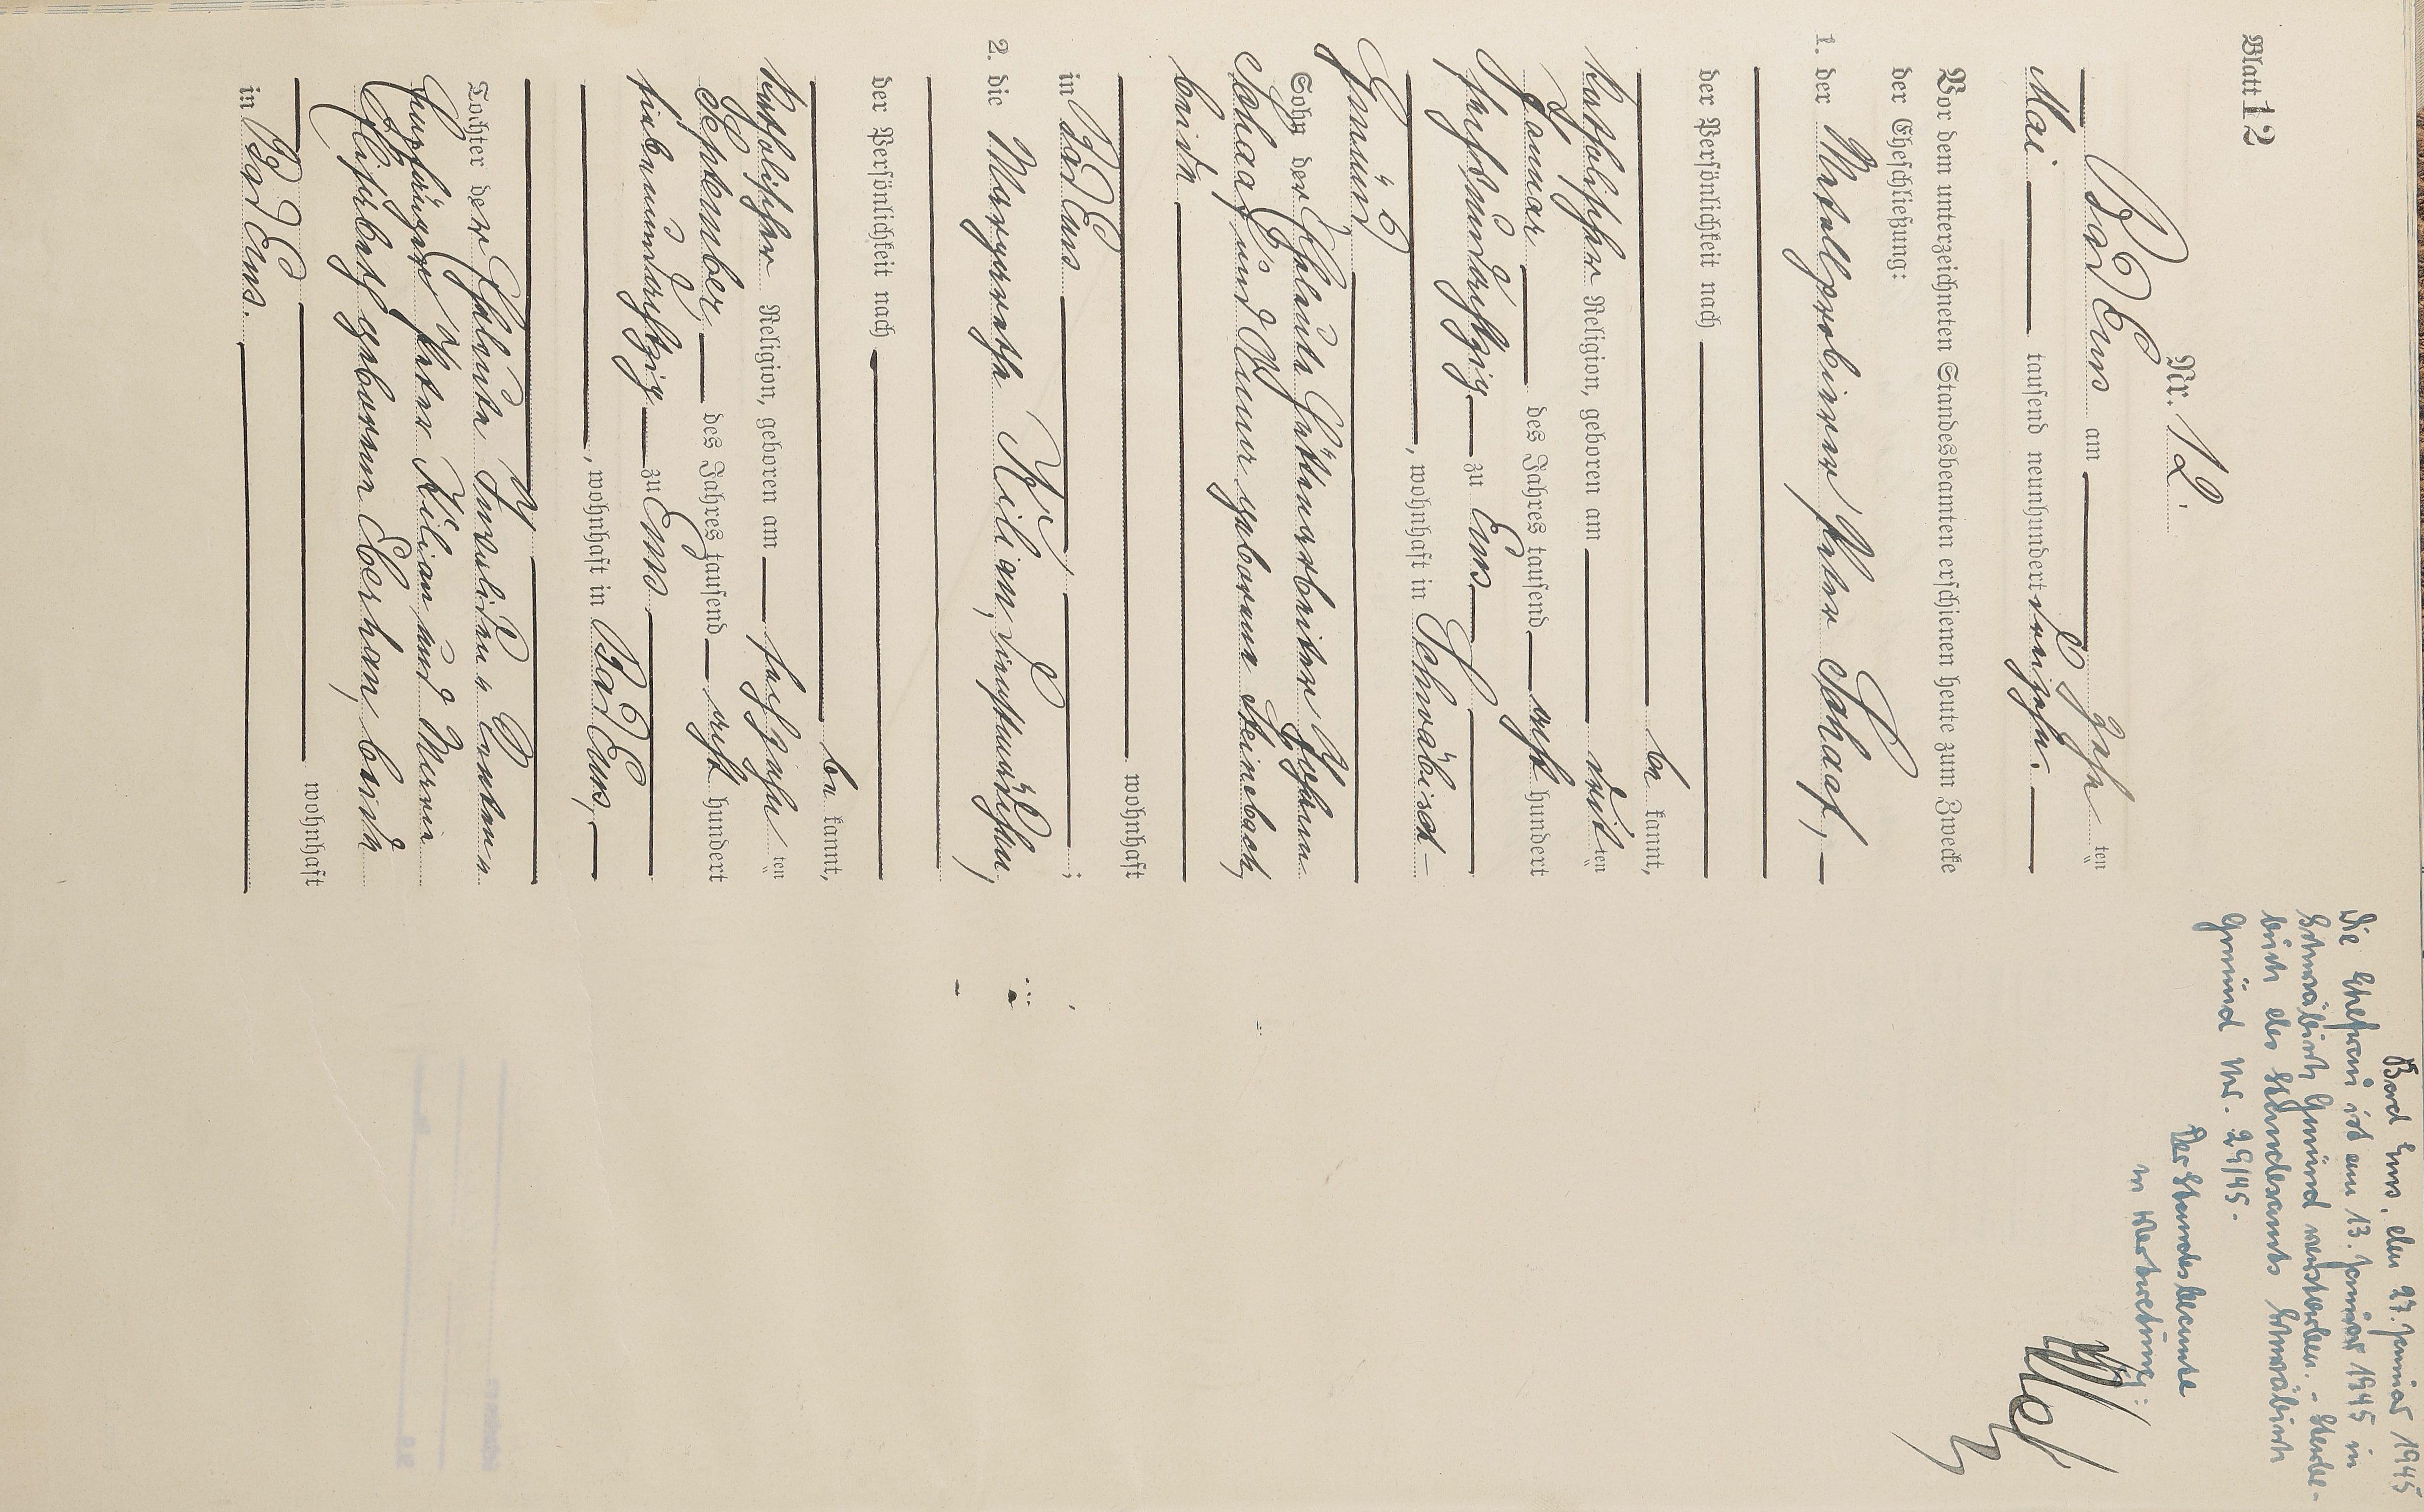 Blatt 12
Nr. 12.
Bad Ems am zehnten
Mai tausend neunhundert dreizehn.
Vor dem unterzeichneten Standesbeamten erschienen heute zum Zwecke
der Eheschließung:
1. der Metallprobierer Peter Schaaf,
der Persönlichkeit nach
be kannt,
katholischer Religion, geboren am dritten
Januar des Jahres tausend acht hundert
fünfundachtzig zu Ems, wohnhaft in Schwäbisch-
Gmünd,
Sohn der Eheleute Hüttenarbeiter Johann
Schaaf und Anna geborene Steinebach,
beide
wohnhaft
in Bad Ems;
2. die Margarethe Kilian, Dienstmädchen,
der Persönlichkeit nach
be kannt,
katholischer Religion, geboren am sechzehnten
September des Jahres tausend acht hundert
siebenundachtzig zu Ems
, wohnhaft in Bad Ems,
Tochter der Eheleute Invaliden-Renten-
empfänger Peter Kilian und Maria
Elisabeth geborenen Eberhan, beide
wohnhaft
in Bad Ems.
Bad Ems, den 27. Januar 1945
Die Ehefrau ist am 13. Januar 1945 in
Schwäbisch Gmünd verstorben. - Sterbe-
buch des Standesamts Schwäbisch
Gmünd Nr. 29/45.
Der Standesbeamte
in Vertretung: